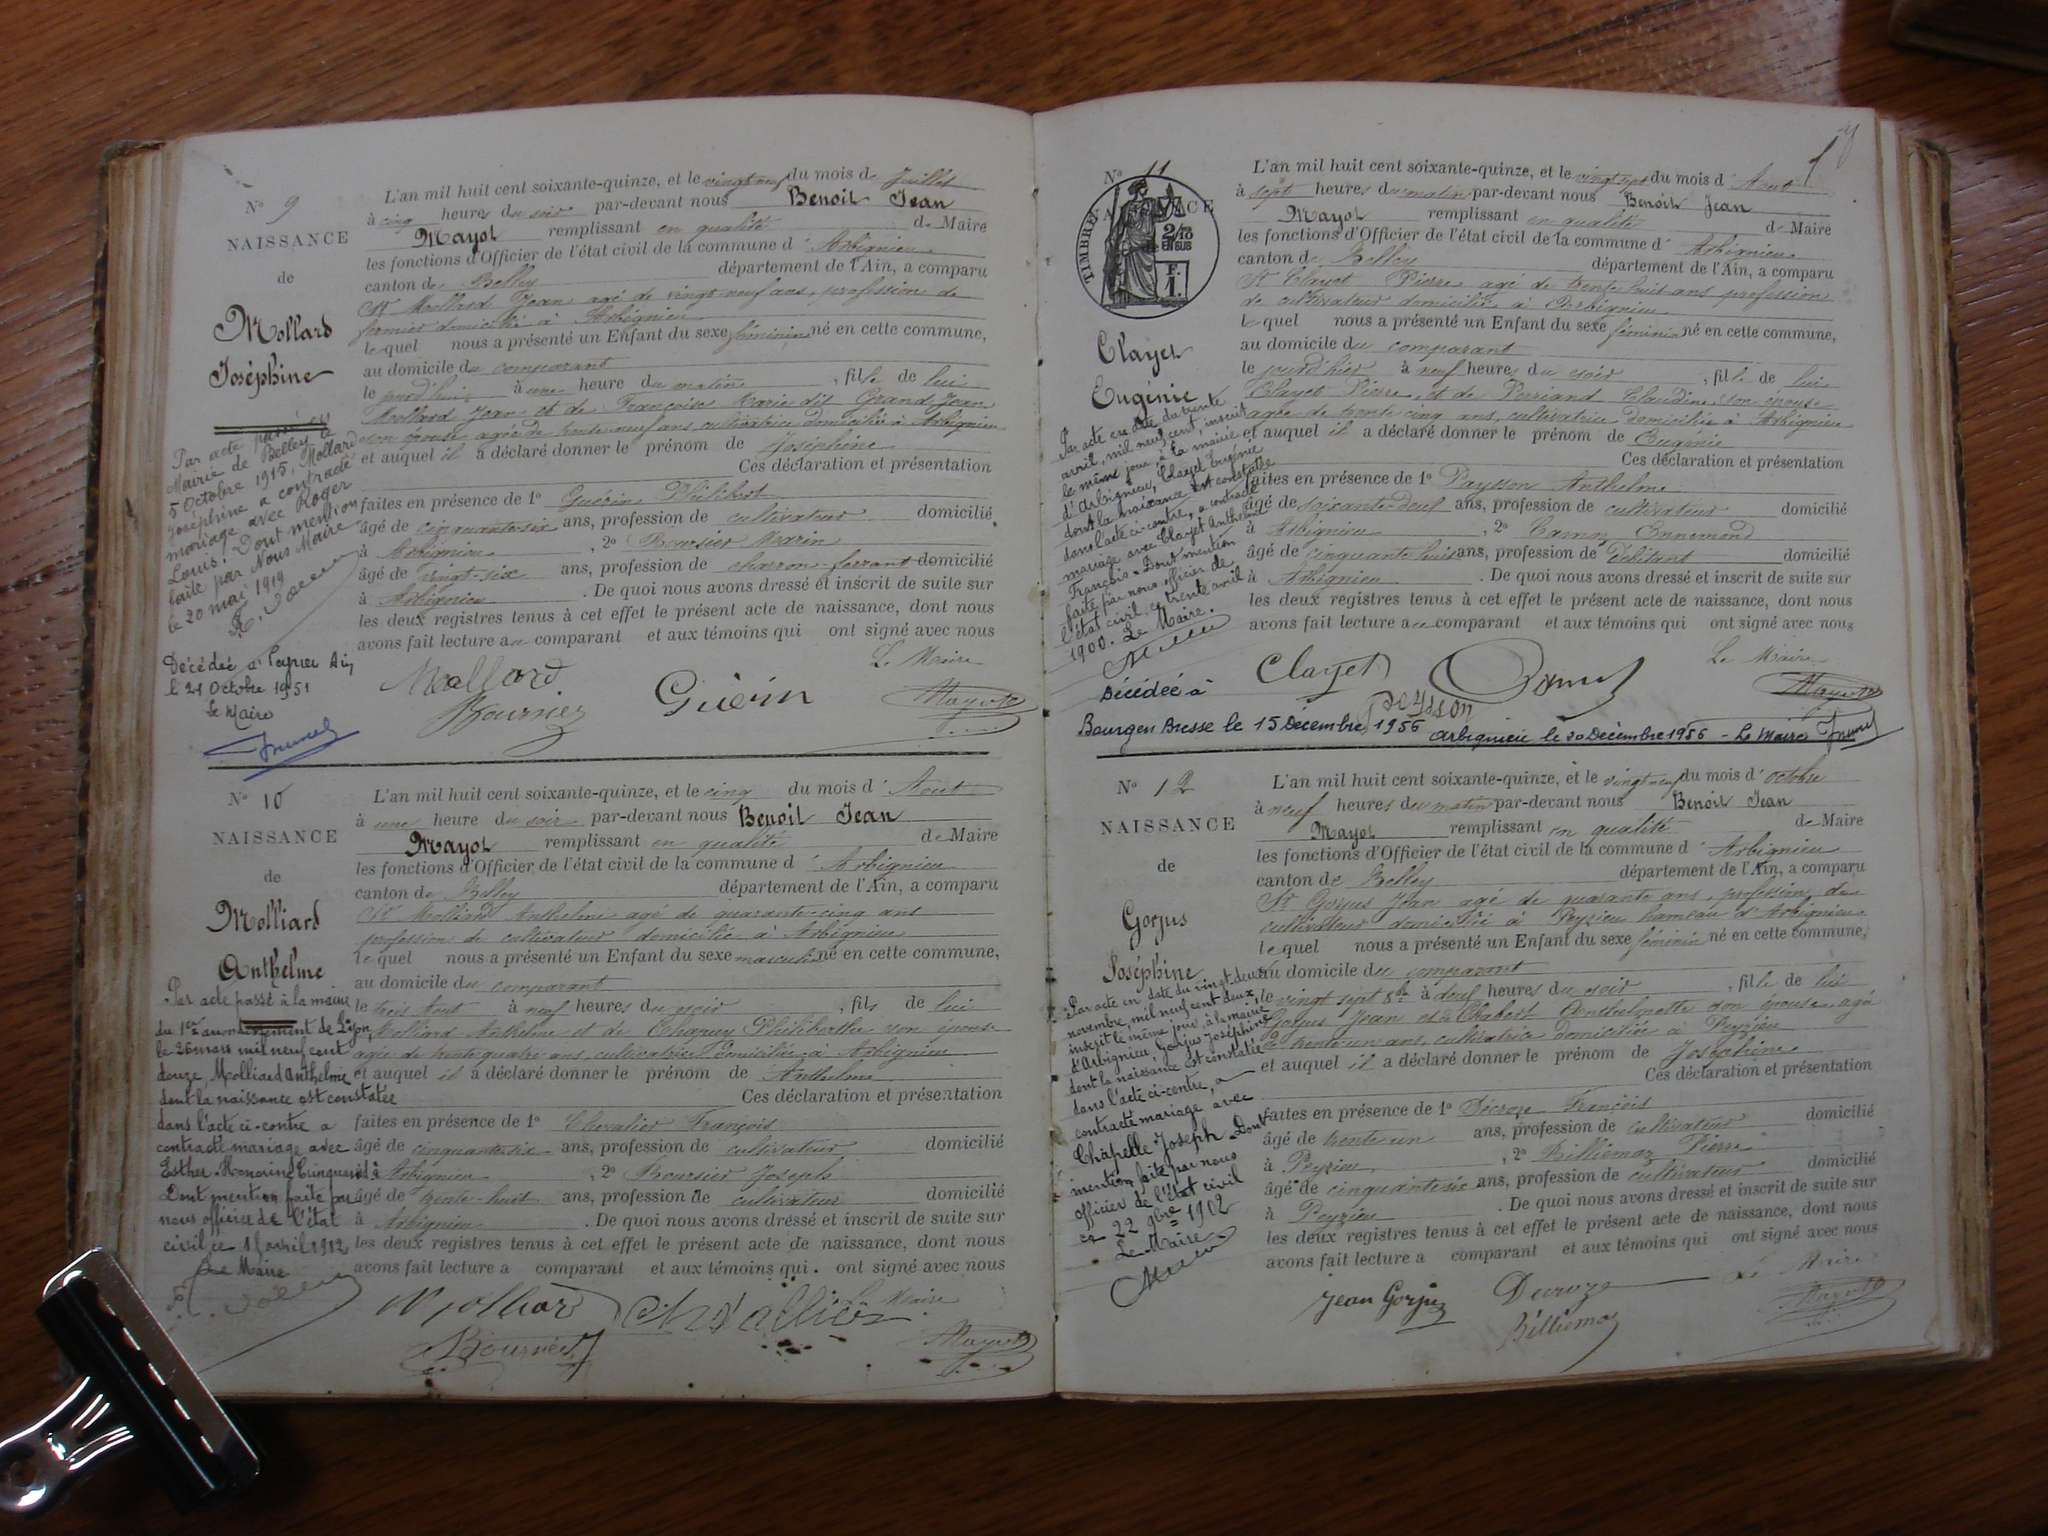 N° 9
NAISSANCE
de
Mollard
Joséphine
Par acte passé en
Mairie de Belley le
5 Octobre 1915, Mollard
Joséphine a contracté
mariage avec Roger
Louis. Dont mention
faite par Nous Maire
le 20 mai 1919
Décédée à Peyrieu Ain
le 21 Octobre 1951
Le Maire
L'an mil huit cent soixante-quinze, et le vingt neuf du mois de Juillet
à cinq heures du soir par-devant nous Benoit Jean
Mayot remplissant en qualité de Maire
les fonctions d'Officier de l'état civil de la commune d'Arbignieu
canton de Belley département de l'Ain, a comparu
Sr Mollard Jean agé de vingt neuf ans, profession de
fermier domicilié à Arbignieu
lequel nous a présenté un Enfant du sexe féminin né en cette commune,
au domicile du comparant
le jourd'hui à une heure du matin, fille de lui
Mollard Jean et de Françoise Marie dit Grand Jean
son épouse agée de trente neuf ans, cultivatrice domiciliée à Arbignieu
et auquel il a déclaré donner le prénom de Joséphine
Ces déclaration et présentation
faites en présence de 1° Guérin Philibert
âgé de cinquante six ans, profession de cultivateur domicilié
à Arbignieu, 2° Boursier Marin
âgé de vingt-six ans, profession de charron-ferrant domicilié
à Arbignieu. De quoi nous avons dressé et inscrit de suite sur
les deux registres tenus à cet effet le présent acte de naissance, dont nous
avons fait lecture au comparant et aux témoins qui ont signé avec nous
Le Maire
Mollard Guérin Mayot
N° 10
NAISSANCE
de
Molliard
Anthelme
Par acte passé à la mairie
du 1er arrondissement de Lyon,
le 26 mars mil neuf cent
douze, Molliard Anthelme
dont la naissance est constatée
dans l'acte ci-contre a
contracté mariage avec
Esther Honorine Cinquand
Dont mention faite par
nous officier de l'état
civil ce 1 avril 1912
Le Maire
L'an mil huit cent soixante-quinze, et le cinq du mois d'Aout
à une heure du soir par-devant nous Benoit Jean
Mayot remplissant en qualité de Maire
les fonctions d'Officier de l'état civil de la commune d'Arbignieu
canton de Belley département de l'Ain, a comparu
Sr Molliard Anthelme agé de quarante-cinq ans
profession de cultivateur domicilié à Arbignieu
lequel nous a présenté un Enfant du sexe masculin né en cette commune,
au domicile du comparant
le trois Aout à neuf heures du soir, fils de lui
Molliard Anthelme et de Chapuy Philiberthe son épouse
agée de trente quatre ans, cultivatrice domiciliée à Arbignieu
et auquel il a déclaré donner le prénom de Anthelme
Ces déclaration et présentation
faites en présence de 1° Chevalier François
âgé de cinquante six ans, profession de cultivateur domicilié
à Arbignieu, 2° Boursier Joseph
âgé de trente-huit ans, profession de cultivateur domicilié
à Arbignieu. De quoi nous avons dressé et inscrit de suite sur
les deux registres tenus à cet effet le présent acte de naissance, dont nous
avons fait lecture a comparant et aux témoins qui. ont signé avec nous
Le Maire
Molliard Mayot
N° 11
NAISSANCE
TIMBRE
2/10
EN SUS
F.
1.
Clayet
Eugénie
Par acte en date du trente
avril, mil neuf cent, inscrit
le même jour à la mairie
d'Arbignieu, Clayet Eugénie
dont la naissance est constatée
dans l'acte ci-contre, a contracté
mariage avec Clayet Anthelme
François. Dont mention
faite par nous officier de
l'état civil, ce trente avril
1900. Le Maire.
L'an mil huit cent soixante-quinze, et le vingt sept du mois d'Aout
à sept heures du matin par-devant nous Benoit Jean
Mayot remplissant en qualité de Maire
les fonctions d'Officier de l'état civil de la commune d'Arbignieu
canton de Belley département de l'Ain, a comparu
Sr Clayet Pierre agé de trente huit ans profession
de cultivateur domicilié à Arbignieu
lequel nous a présenté un Enfant du sexe féminin né en cette commune,
au domicile du comparant
le jourd'hier à neuf heures du soir, fille de lui
Clayet Pierre, et de Perriand Claudine, son épouse
agée de trente cinq ans, cultivatrice domiciliée à Arbignieu
et auquel il a déclaré donner le prénom de Eugénie
Ces déclaration et présentation
faites en présence de 1° Peysson Anthelme
âgé de soixante-deux ans, profession de cultivateur domicilié
à Arbignieu, 2° Ennemond
âgé de cinquante huit ans, profession de Débitant domicilié
à Arbignieu. De quoi nous avons dressé et inscrit de suite sur
les deux registres tenus à cet effet le présent acte de naissance, dont nous
avons fait lecture au comparant et aux témoins qui ont signé avec nous
Le Maire
Clayet Peysson Mayot
Décédée à
Bourg en Bresse le 15 Décembre 1956 Arbignieu le 20 Décembre 1956 - Le Maire
N° 12
NAISSANCE
de
Gorjus
Joséphine
Par acte en date du vingt deux
novembre, mil neuf cent deux,
inscrit le même jour, à la mairie
d'Arbignieu, Gorjus Joséphine
dont la naissance est constatée
dans l'acte ci-contre, a
contracté mariage avec
Chapelle Joseph. Dont
mention faite par nous
officier de l'état civil
ce 22 9bre 1902
Le Maire
L'an mil huit cent soixante-quinze, et le vingt-neuf du mois d'octobre
à neuf heures du matin par-devant nous Benoit Jean
Mayot remplissant en qualité de Maire
les fonctions d'Officier de l'état civil de la commune d'Arbignieu
canton de Belley département de l'Ain, a comparu
Sr Gorjus Jean agé de quarante ans, profession de
cultivateur domicilié à Peyzieu hameau d'Arbignieu
lequel nous a présenté un Enfant du sexe féminin né en cette commune,
au domicile du comparant
le vingt sept 8bre à heures du soir, fille de lui
Gorjus Jean et de Chabert Anthelmette son épouse, agée
de trente un ans, cultivatrice domiciliée à Peyzieu
et auquel il a déclaré donner le prénom de Joséphine
Ces déclaration et présentation
faites en présence de 1° Décroze François
âgé de trente un ans, profession de cultivateur domicilié
à Peyzieu, 2° Billiemaz Pierre
âgé de cinquante six ans, profession de cultivateur domicilié
à Peyzieu. De quoi nous avons dressé et inscrit de suite sur
les deux registres tenus à cet effet le présent acte de naissance, dont nous
avons fait lecture a comparant et aux témoins qui ont signé avec nous
Le Maire
Jean Gorjus Decroze Mayot
Billiemaz